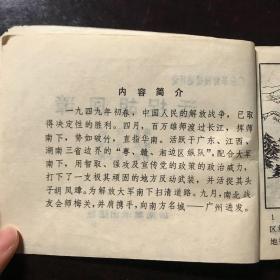 内容简介
一九四九年初春，中国人民的解放战争，已取
得决定性的胜利。四月，百万雄师渡过长江，挥师
南下，势如破竹，直指华南。活跃于广东、江西、
湖南三省边界的“粤、赣、湘边区纵队”，配合大军
南下，用智取、强攻及宣传党的政策的政治威力，
打下了一支极其顽固的地方反动武装，并活捉其头
子胡凤璋。为解放大军南下扫清道路。九月，南北战
友会师梅关，并肩携手，向南方名城——广州进发。
1
区
地